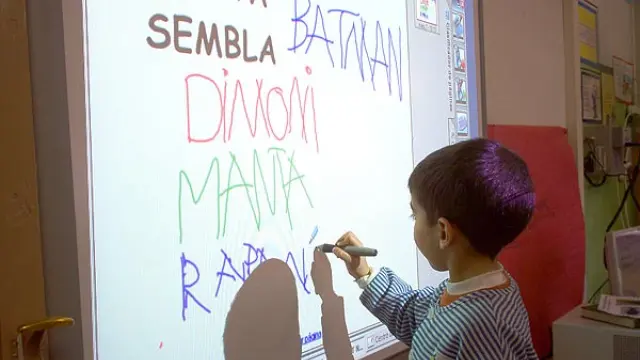 SEMBLA
BATMAN
DIMONI
MANTA
RAPAN